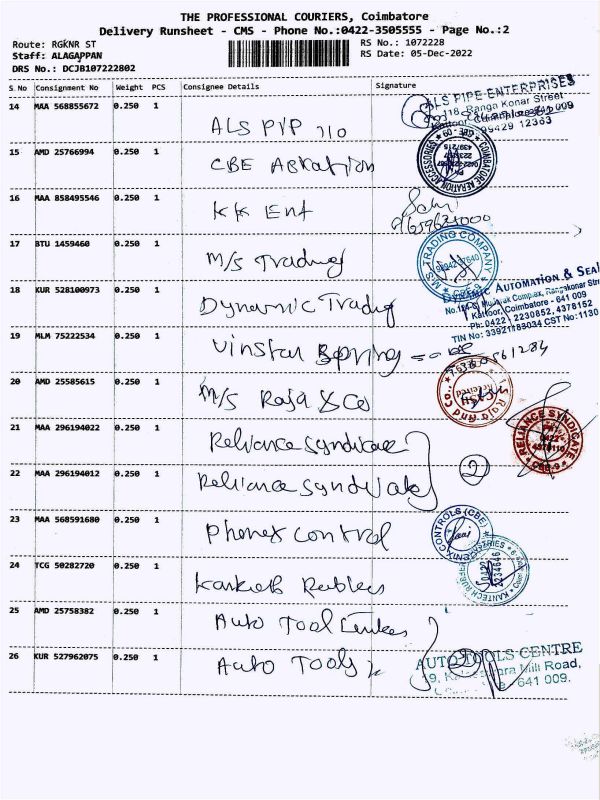 THE PROFESSIONAL COURIERS, Coimbatore
Delivery Runsheet - CMS - Phone No.:0422-3505555 - Page No.:2
Route: RGKNR ST
RS No.: 1072228
Staff: ALAGAPPAN
RS Date: 05-Dec-2022
DRS No.: DCJB107222802
S.No Consignment No Weight PCS Consignee Details Signature
14 MAA 568855672 0.250 1
ALS PIPE ENTERPRISES
118, Ranga Konar Street
99429 12363
ALS
15 AMD 25766994 0.250 1
CBE Aeration
COIMBATORE AERATION ACCESSORIES
16 MAA 858495546 0.250 1
KK Ent
17 BTU 1459460 0.250 1
M/S Trading
M/S TRADING COMPANY
CBE-9
18 KUR 528100973 0.250 1
AUTOMATION & SEAL
Complex, Rangakonar Street
Kattoor, Coimbatore - 641 009
Ph: 0422 - 2230852, 4378152
Dynamic Trading
TIN No: 33921183034 CST No:1130
19 MLM 75222534 0.250 1
Vinstar
20 AMD 25585615 0.250 1
M/S Raja & Co
21 MAA 296194022 0.250 1
Reliance Syndicate
RELIANCE SYNDICATE
0422
4378110
CBE-9
22 MAA 296194012 0.250 1
Reliance Syndicate
2
23 MAA 568591680 0.250 1
Phonex Control
CONTROLS (CBE)
24 TCG 50282720 0.250 1
0422
2234646
25 AMD 25758382 0.250 1
Auto Tool
26 KUR 527962075 0.250 1
Auto Tools
AUTO TOOLS CENTRE
Mill Road,
641 009.